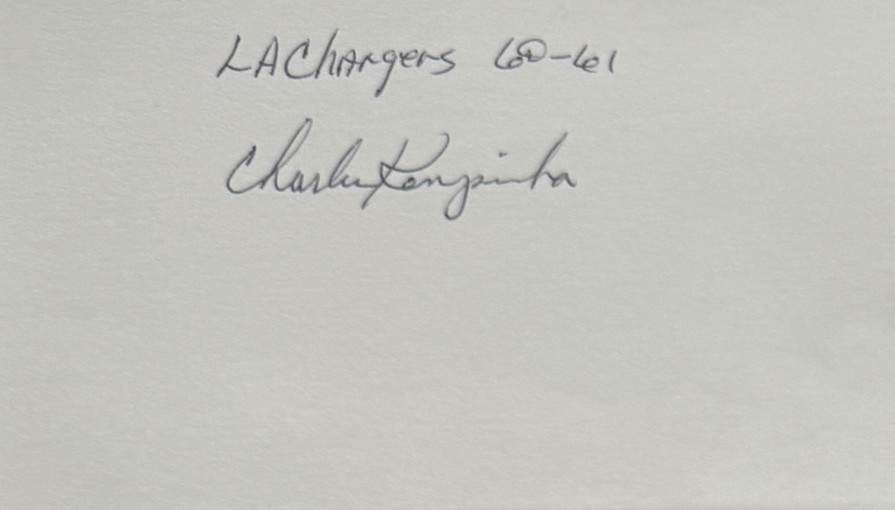 LA Chargers 60-61
Charlie Kempinska